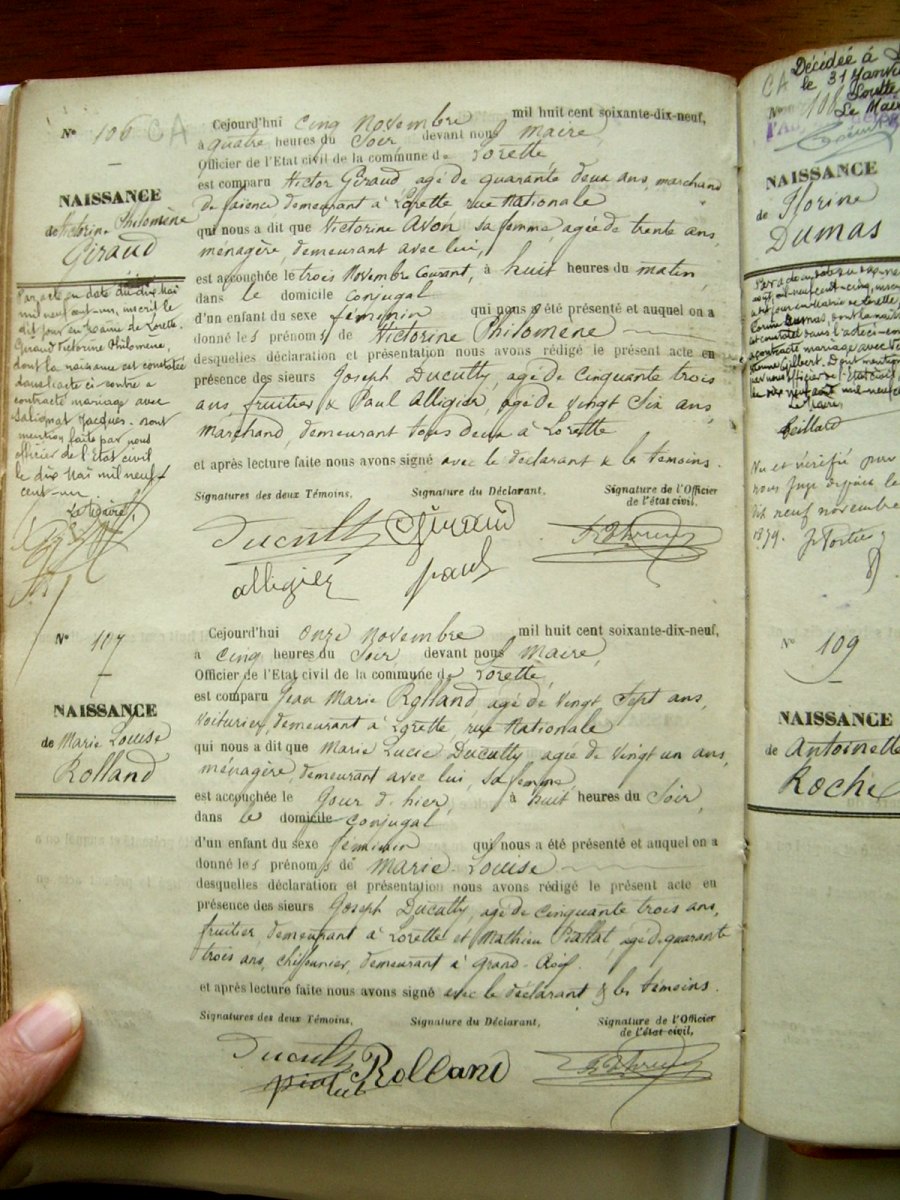 N° 106 CA
NAISSANCE
de Victorine Philomène
Giraud
Par acte en date du dix Mai
mil neuf cent-un, inscrit le
dit jour en Mairie de Lorette.
Giraud Victorine Philomène
dont la naissance est constatée
dans l'acte ci-contre a
contracté mariage avec
Jacques. dont
mention faite par nous
officier de l'Etat civil
le dix Mai mil neuf
cent-un
Le Maire
Cejourd'hui cinq novembre mil huit cent soixante-dix-neuf,
à quatre heures du Soir, devant nous Maire,
Officier de l'Etat civil de la commune de Lorette
est comparu Victor Giraud, agé de quarante deux ans, marchand
de faience, demeurant à Lorette rue Nationale
qui nous a dit que Victorine Avon sa femme, agée de trente ans,
ménagère, demeurant avec lui,
est accouchée le trois Novembre Courant, à huit heures du matin
dans le domicile conjugal
d'un enfant du sexe féminin qui nous a été présenté et auquel on a
donné les prénoms de Victorine Philomène
desquelles déclaration et présentation nous avons rédigé le présent acte en
présence des sieurs Joseph Ducutty, agé de Cinquante trois
ans, fruitier & Paul Alligier, agé de Vingt Six ans
Marchand, demeurant tous deux à Lorette
et après lecture faite nous avons signé avec le déclarant & les témoins.
Signatures des deux Témoins, Signature du Déclarant, Signature de l'Officier
de l'état civil,
Giraud
alligier paul
N° 107
NAISSANCE
de Marie Louise
Rolland
Cejourd'hui onze novembre mil huit cent soixante-dix-neuf,
à cinq heures du Soir, devant nous Maire,
Officier de l'Etat civil de la commune de Lorette,
est comparu Jean Marie Rolland agé de Vingt Sept ans,
Voiturier, demeurant à Lorette, rue Nationale
qui nous a dit que Marie Lucie Ducutty, agée de Vingt un ans,
ménagère, demeurant avec lui, sa femme
est accouchée le jour d'hier, à huit heures du Soir,
dans le domicile conjugal
d'un enfant du sexe féminin qui nous a été présenté et auquel on a
donné les prénoms de Marie Louise
desquelles déclaration et présentation nous avons rédigé le présent acte en
présence des sieurs Joseph Ducutty, agé de Cinquante trois ans,
fruitier, demeurant à Lorette et Mathieu agé de quarante
trois ans, demeurant à Grand-
et après lecture faite nous avons signé avec le déclarant & les témoins.
Signatures des deux Témoins, Signature du Déclarant, Signature de l'Officier
de l'état civil,
Rolland
CA Décédée à
le 31 Janvi
N° 108 Lorette
Le Mair
NAISSANCE
de Florine
DUMAS
Vu et vérifié par
nous Juge de paix le
dix neuf novembre
1879.
N° 109
NAISSANCE
de Antoinette
Roche